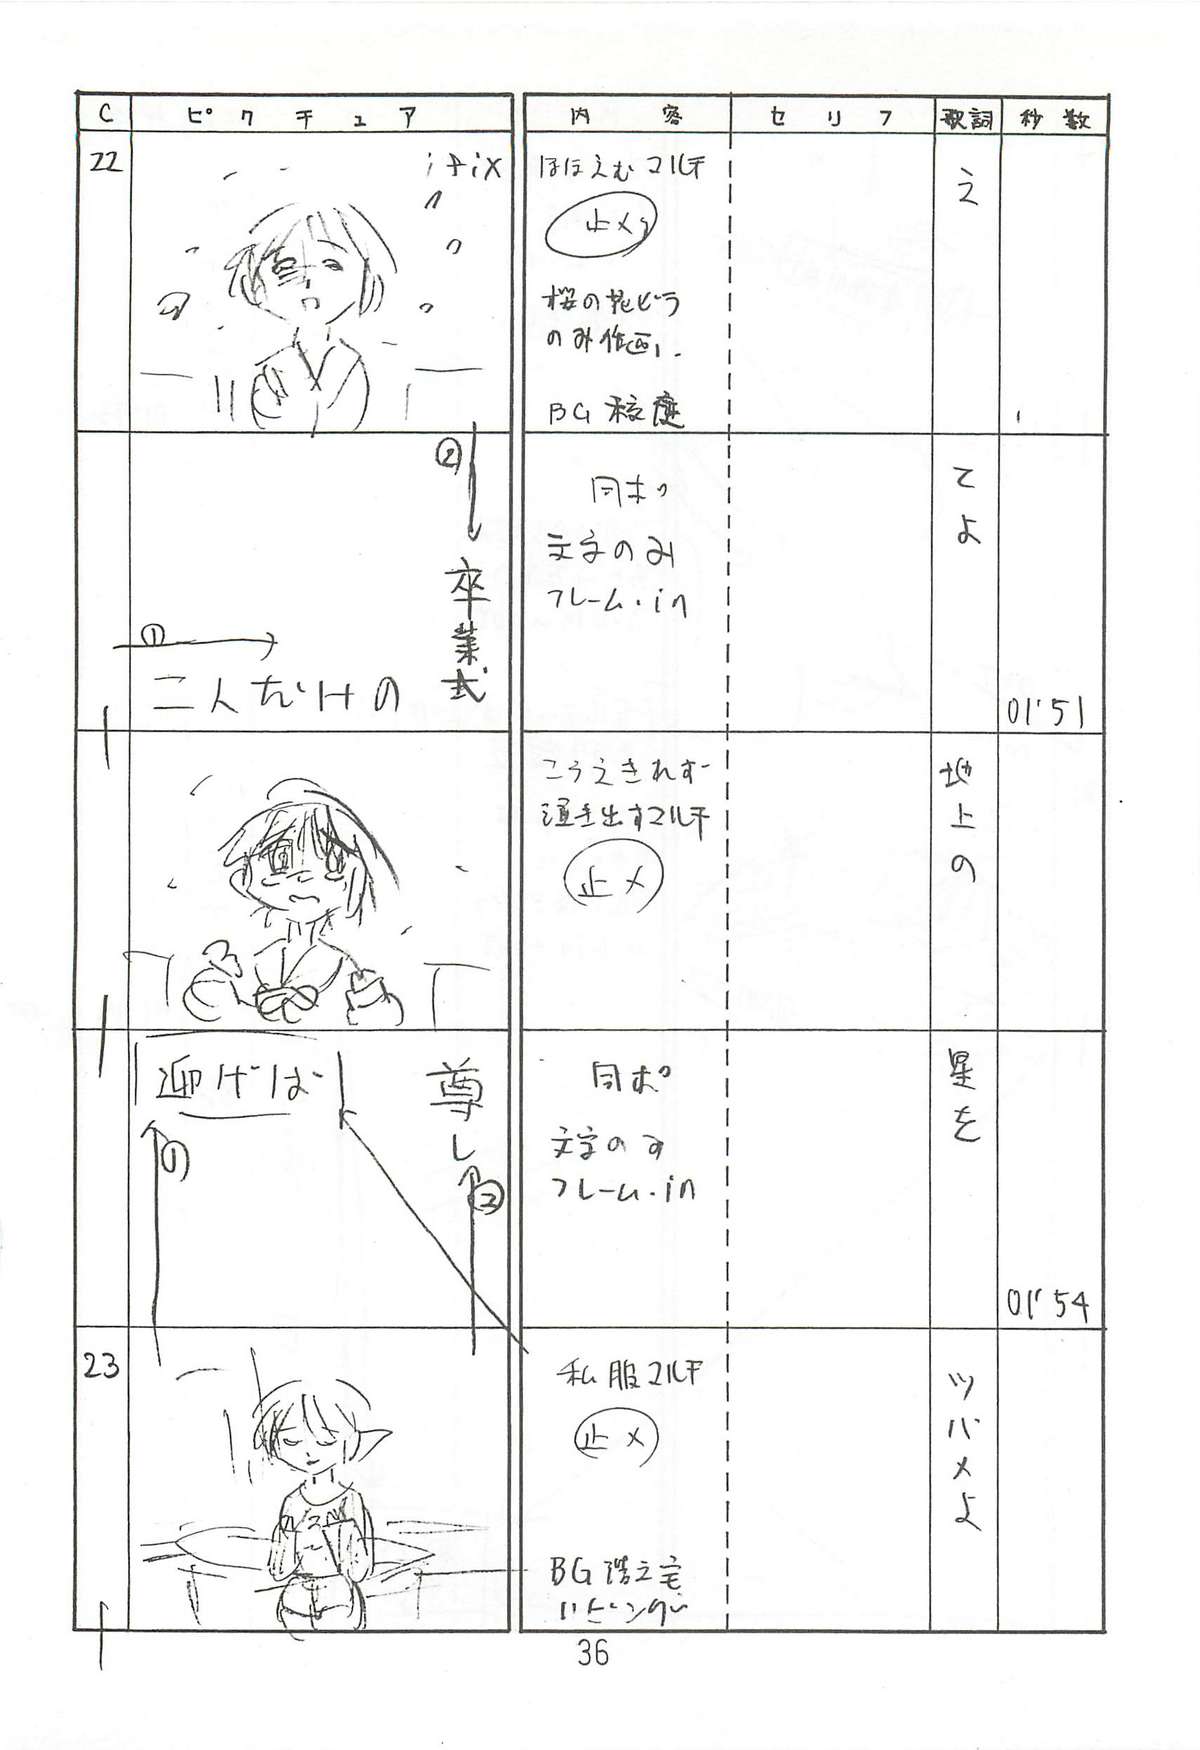 C ピクチュア 内容 セリフ 歌詞 秒数
22
fix
ほほえむマルチ
止メ
桜の花びら
のみ作画
BG 校庭
え
②
卒業式
①
二人だけの
同ポ
文字のみ
フレーム・in
てよ
01'51
こらえきれず
涙き出すマルチ
止メ
地上の
迎げば
尊し
①
②
同ポ
文字のみ
フレーム・in
星を
01'54
23
私服マルチ
止メ
BG 浩之宅
リビング
ツバメよ
36